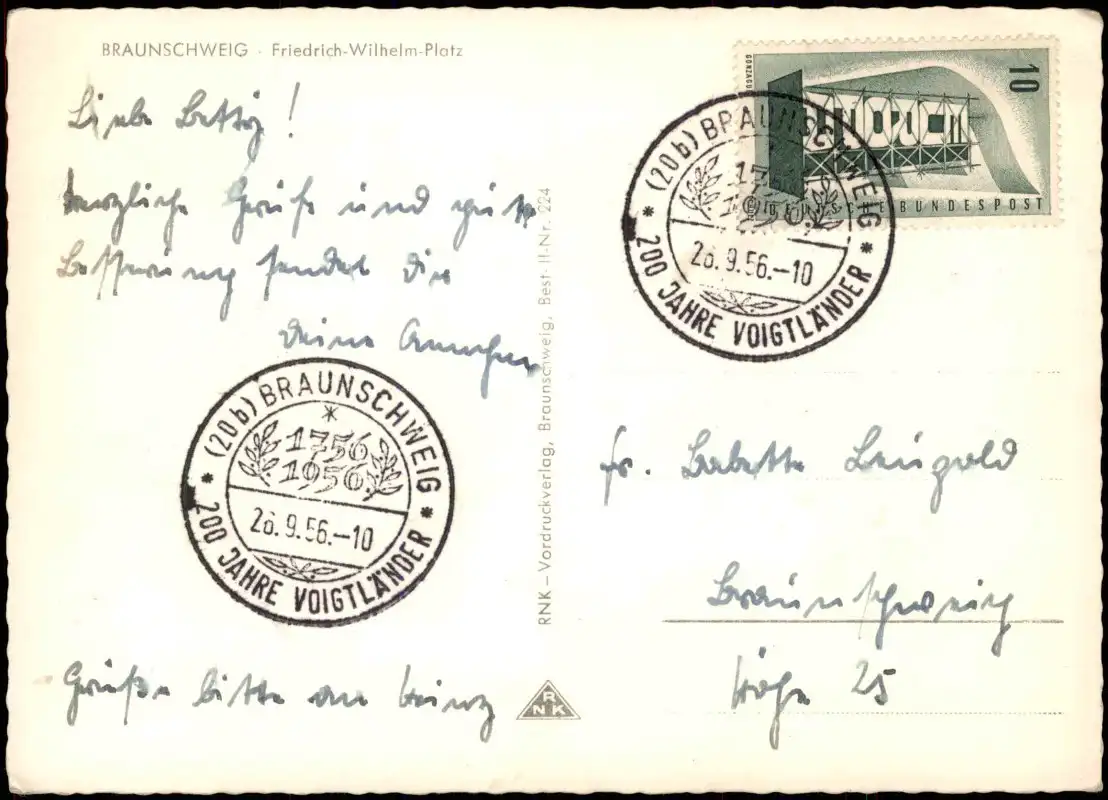 BRAUNSCHWEIG · Friedrich-Wilhelm-Platz
Liebe Betty!
herzliche Grüße und gute
Besserung sendet dir
deine Annchen
(20b) BRAUNSCHWEIG
1756
1956
28.9.56.-10
* 200 JAHRE VOIGTLÄNDER *
Grüße bitte an Heinz
RNK – Vordruckverlag, Braunschweig, Best.-II-Nr. 224
RNK
10
EUROPA
DEUTSCHE BUNDESPOST
(20b) BRAUNSCHWEIG
1756
1956
28.9.56.-10
* 200 JAHRE VOIGTLÄNDER *
Fr. Babette Leupold
Braunschweig
Höhe 25